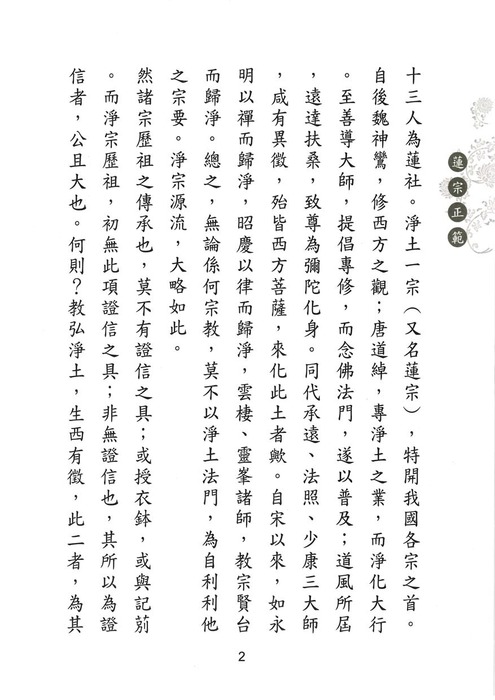 蓮宗正範
十三人為蓮社。淨土一宗（又名蓮宗），特開我國各宗之首。
自後魏神鸞，修西方之觀；唐道綽，專淨土之業，而淨化大行
。至善導大師，提倡專修，而念佛法門，遂以普及；道風所屆
，遠達扶桑，致尊為彌陀化身。同代承遠、法照、少康三大師
，咸有異徵，殆皆西方菩薩，來化此土者歟。自宋以來，如永
明以禪而歸淨，昭慶以律而歸淨，雲棲、靈峯諸師，教宗賢台
而歸淨。總之，無論係何宗教，莫不以淨土法門，為自利利他
之宗要。淨宗源流，大略如此。
然諸宗歷祖之傳承也，莫不有證信之具；或授衣鉢，或與記莂
。而淨宗歷祖，初無此項證信之具；非無證信也，其所以為證
信者，公且大也。何則？教弘淨土，生西有徵，此二者，為其
2